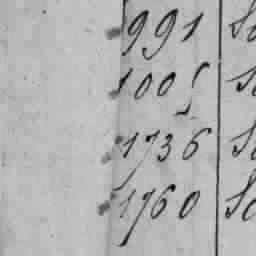 991
1005
1736
1760